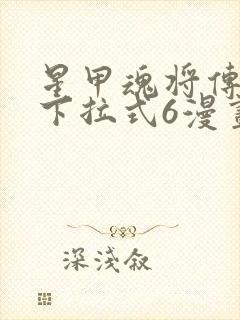 星甲魂将傳
下拉式6漫畫
深淺叙